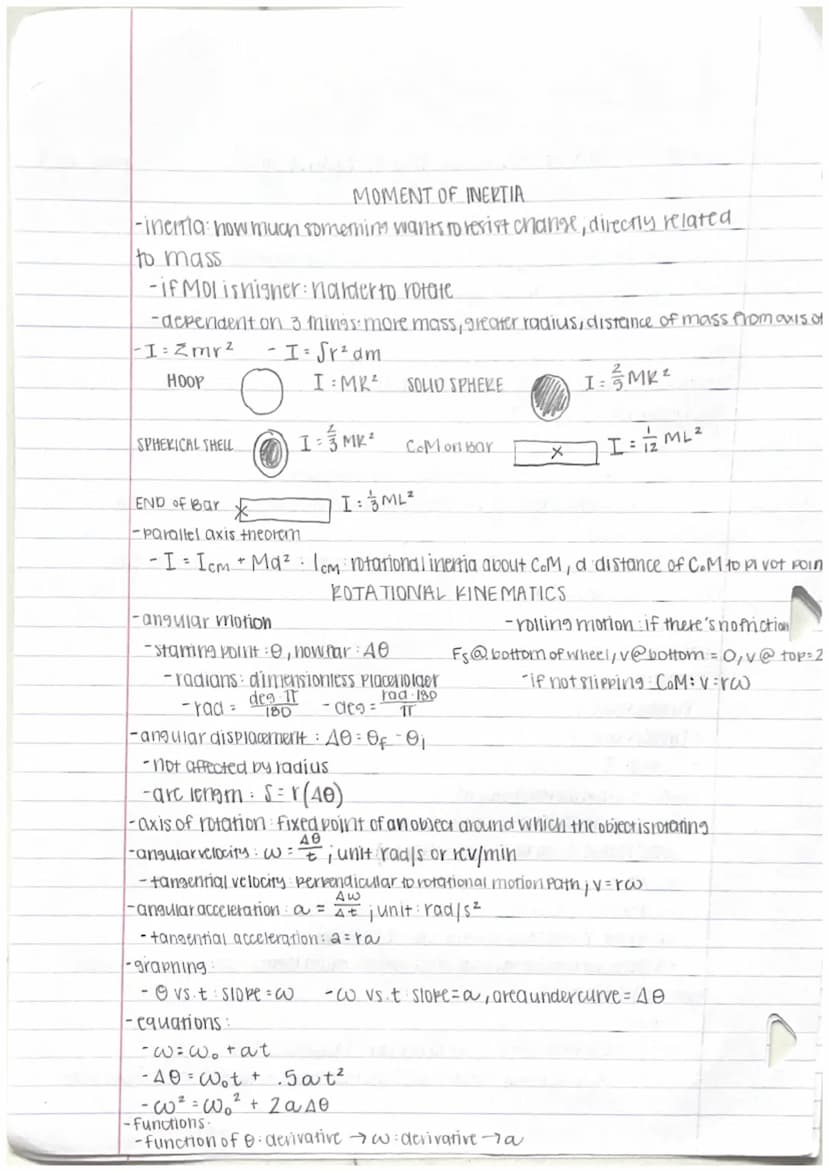 MOMENT OF INERTIA
-inertia: how much something wants to resist change, directly related
to mass
-if MOI is higher: harder to rotate
-dependent on 3 things: more mass, greater radius, distance of mass from axis of
-I = Σmr² - I = ∫r²dm
HOOP I = MR² SOLID SPHERE I = 2/5 MR²
SPHERICAL SHELL I = 2/3 MR² CoM on Bar x I = 1/12 ML²
END of Bar x I = 1/3 ML²
-parallel axis theorem
-I = Icm + Md² : Icm: rotational inertia about CoM, d: distance of CoM to pivot poin
ROTATIONAL KINEMATICS
-angular motion -rolling motion: if there's no friction
-starting point: θ, how far: Δθ Fs @ bottom of wheel, v @ bottom = 0, v @ top = 2
-radians: dimensionless placeholder -if not slipping: CoM: v = rω
-rad = deg·π/180 -deg = rad·180/π
-angular displacement: Δθ = θf - θi
-not affected by radius
-arc length: S = r(Δθ)
-axis of rotation: fixed point of an object around which the object is rotating
-angular velocity: ω = Δθ/t ; unit: rad/s or rev/min
-tangential velocity: perpendicular to rotational motion path; v = rω
-angular acceleration: α = Δω/Δt ; unit: rad/s²
-tangential acceleration: a = rα
-graphing:
-θ vs. t: slope = ω -ω vs. t: slope = α, area under curve = Δθ
-equations:
-ω = ω₀ + αt
-Δθ = ω₀t + .5αt²
-ω² = ω₀² + 2αΔθ
-functions:
-function of θ: derivative → ω: derivative → α